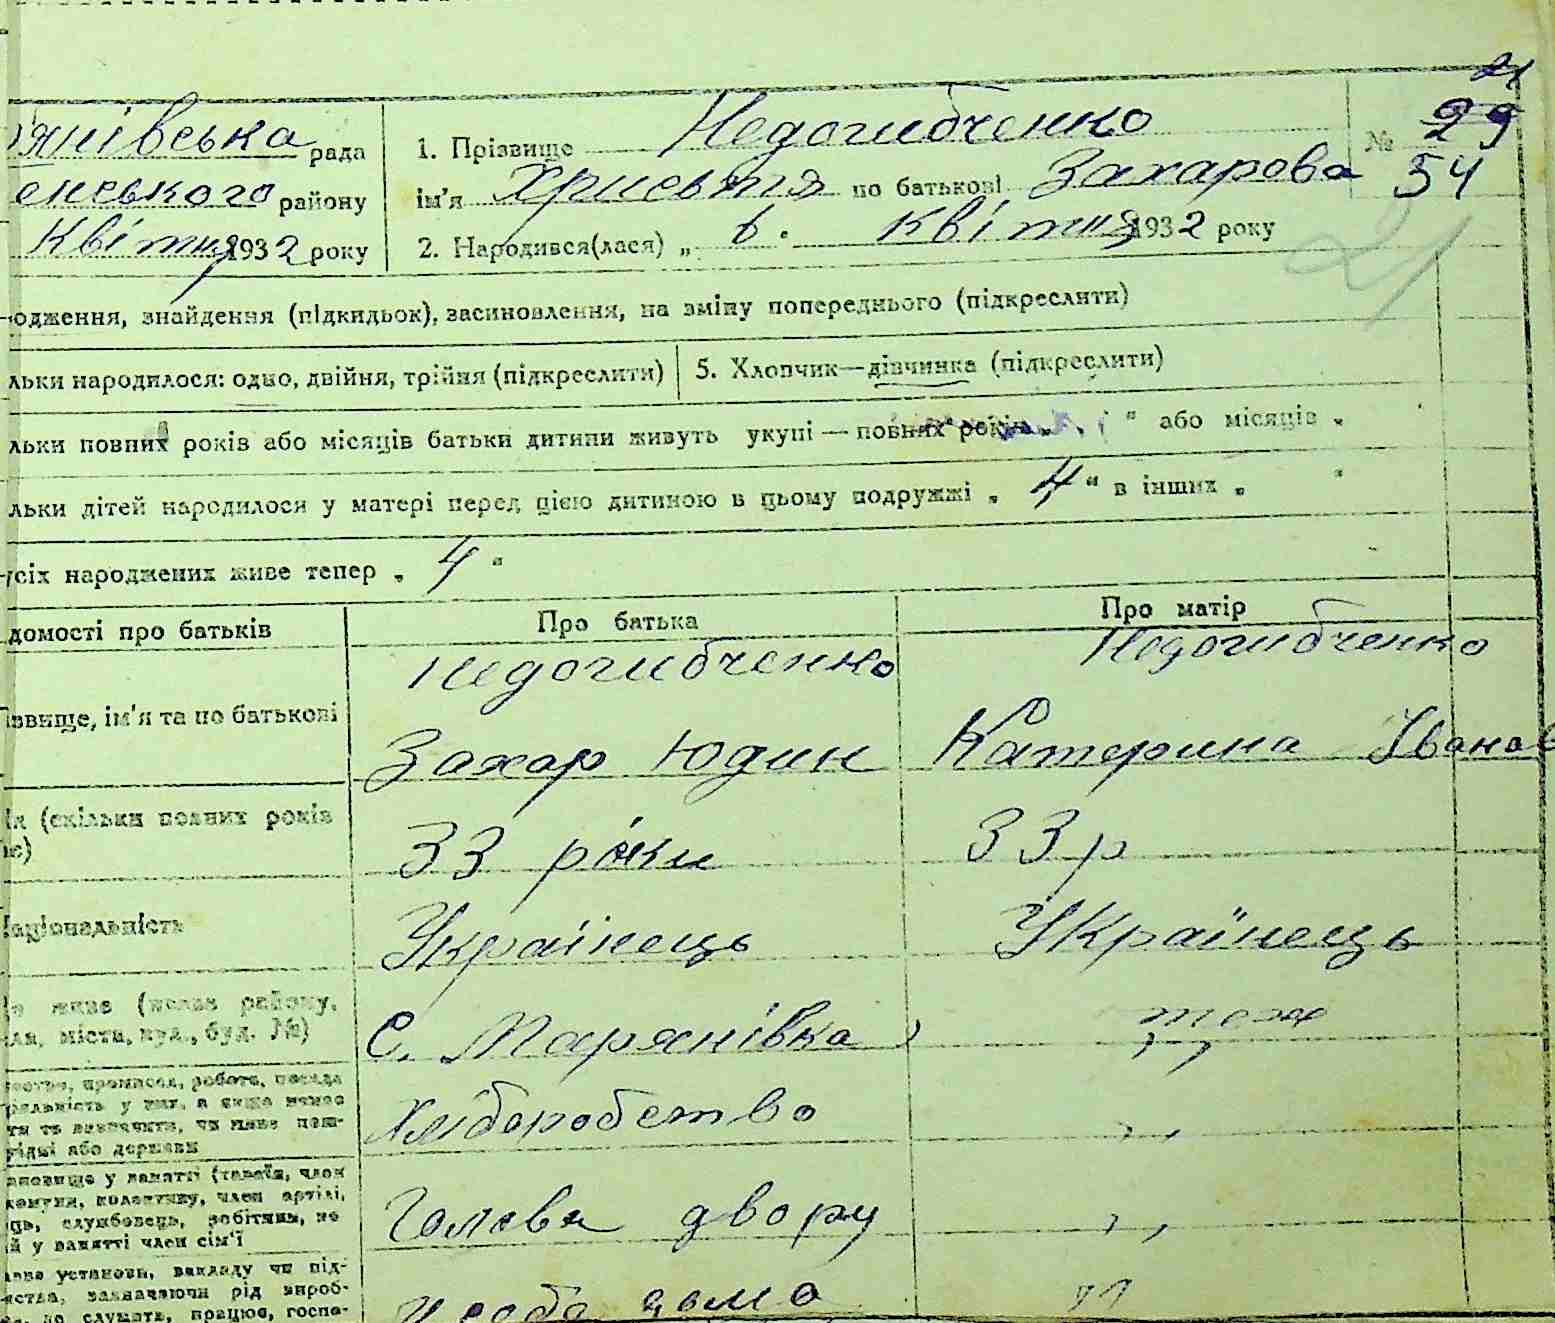 21
янівська рада
1. Прізвище Недогибченко
№ 29
54
енського району
ім'я Христя по батькові Захарова
Квітня 1932 року
2. Народився(лася) „ 6. квітня 1932 року
21
одження, знайдення (підкидьок), засиновлення, на зміну попереднього (підкреслити)
льки народилося: одно, двійня, трійня (підкреслити)
5. Хлопчик—дівчинка (підкреслити)
льки повних років або місяців батьки дитини живуть укупі — повних років „ “ або місяців „
льки дітей народилося у матері перед цією дитиною в цьому подружжі „ 4 “ в інших „ “
усіх народжених живе тепер „ 4 “
домості про батьків
Про батька
Про матір
ізвище, ім'я та по батькові
Недогибченко
Захар Юдин
Недогибченко
Катерина Іванов
ік (скільки повних років
33 роки
33 р
аціональність
Українець
Українець
живе (назва району,
ла, міста, вул., буд. №)
С. Марянівка
тож
промисел, робота, посада
яльність у них, а якщо немає
ти то зазначити, чи живе
або держави
Хліборобство
„
ановище у занятті (хазяїн, член
комуни, колективу, член артілі,
ць, службовець, робітник, не
й у занятті член сім'ї
Голова двору
„
установи, закладу чи під-
мства, зазначаючи рід вироб-
де служить, працює, госпо-
дома
„